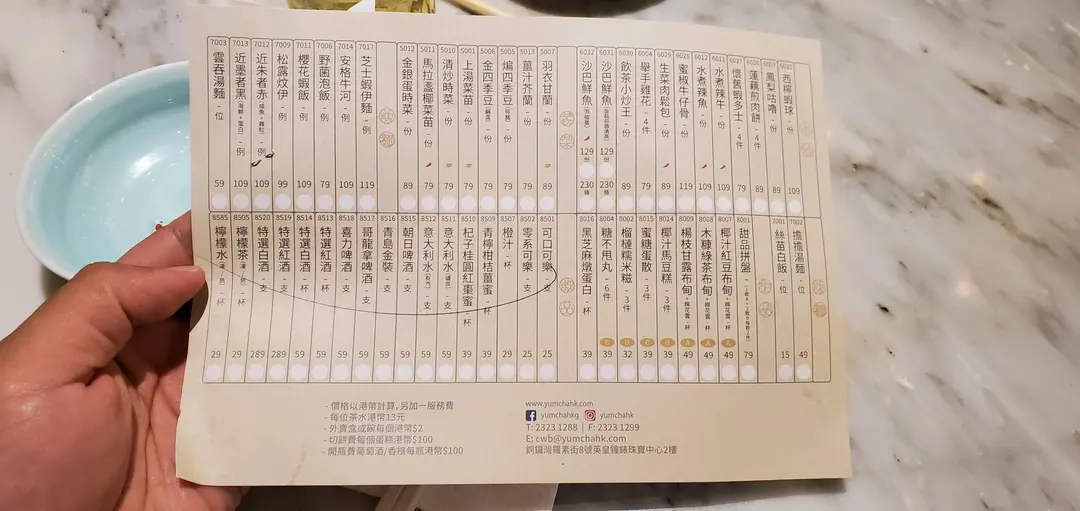 6020 西檸蝦球 - 份 109
6007 鳳梨咕嚕 - 份 89
蓮藕煎肉餅 - 4件 89
6027 懷舊蝦多士 - 4件 79
6011 水煮辣牛 - 份 109
6012 水煮辣魚 - 份 109
6028 蜜椒牛仔骨 - 份 119
6029 生菜肉鬆包 - 份 89
6004 舉手雞花 - 4件 79
6030 飲茶小炒王 - 份 89
6031 沙巴鮮魚 129 份 230 條
6032 沙巴鮮魚 129 份 230 條
5007 羽衣甘蘭 - 份 89
5013 薑汁芥蘭 - 份 79
5005 煸四季豆 - 份 79
5006 金四季豆(鹹蛋) - 份 79
5001 上湯菜苗 - 份 79
5010 清炒時菜 - 份 79
5011 馬拉盞椰菜苗 - 份 79
5012 金銀蛋時菜 - 份 89
7017 芝士蝦伊麵 - 例 119
7014 安格牛河 - 例 109
7006 野菌泡飯 - 例 79
7011 櫻花蝦飯 - 例 109
7009 松露炆伊 - 例 99
7012 近朱者赤 - 例 109
7013 近墨者黑 - 例 109
7003 雲吞湯麵 - 位 59
7002 擔擔湯麵 - 位 49
7001 絲苗白飯 - 位 15
8001 甜品拼盤 79
8007 椰汁紅豆布甸+棉花雲 - 杯 A 49
8008 木糠綠茶布甸+棉花雲 - 杯 A 49
8009 楊枝甘露布甸+棉花雲 - 杯 A 49
8014 椰汁馬豆糕 - 3件 B 39
8015 蜜糖蛋散 - 3件 B 39
8002 榴槤糯米糍 - 3件 B 32
8004 糖不甩丸 - 6件 B 39
8016 黑芝麻燉蛋白 - 杯 39
8501 可口可樂 - 支 25
8502 零系可樂 - 支 25
8507 橙汁 - 杯 29
8509 青檸柑桔薑蜜 - 杯 39
8510 杞子桂圓紅棗蜜 - 杯 39
8511 意大利水 - 支 59
8512 意大利水(有汽) - 支 59
8515 朝日啤酒 - 支 59
8516 青島金裝 - 支 59
8517 哥龍拿啤酒 - 支 59
8518 喜力啤酒 - 支 59
8513 特選紅酒 - 杯 59
8514 特選白酒 - 杯 59
8519 特選紅酒 - 支 289
8520 特選白酒 - 支 289
8505 檸檬茶(凍/熱) - 杯 29
8585 檸檬水(凍/熱) - 杯 29
- 價格以港幣計算,另加一服務費
- 每位茶水港幣13元
- 外賣盒或碗每個港幣$2
- 切餅費每個蛋糕港幣$100
- 開瓶費葡萄酒/香檳每瓶港幣$100
www.yumchahk.com
yumchahkg yumchahk
T: 2323 1288 | F: 2323 1299
E: cwb@yumchahk.com
銅鑼灣羅素街8號英皇鐘錶珠寶中心2樓